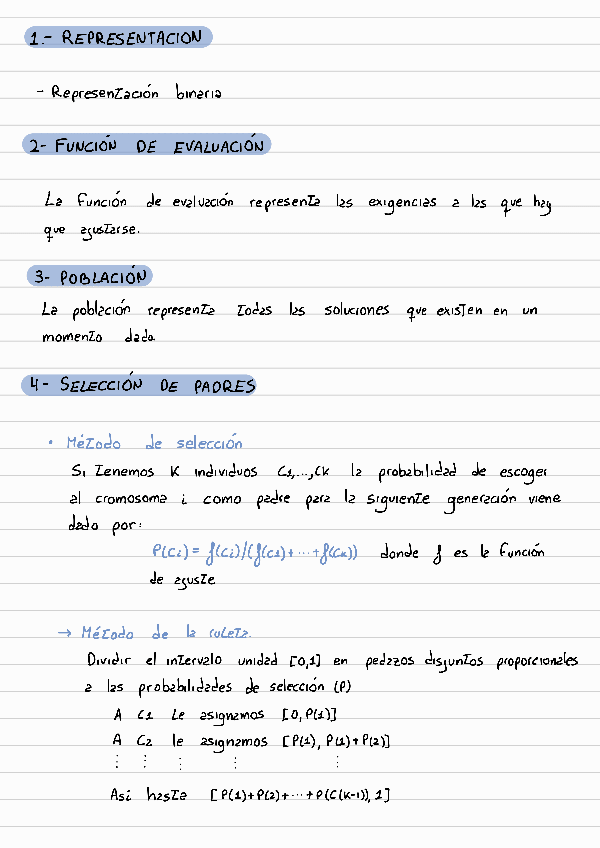 1.- REPRESENTACIÓN
- Representación binaria
2- FUNCIÓN DE EVALUACIÓN
La función de evaluación representa las exigencias a las que hay
que ajustarse.
3- POBLACIÓN
La población representa todas las soluciones que existen en un
momento dado.
4- SELECCIÓN DE PADRES
• Método de selección
Si tenemos K individuos C1,...,CK la probabilidad de escoger
al cromosoma i como padre para la siguiente generación viene
dado por:
P(Ci) = f(Ci)/(f(C1)+ ··· +f(Ck)) donde f es la función
de ajuste
→ Método de la ruleta.
Dividir el intervalo unidad [0,1] en pedazos disjuntos proporcionales
a las probabilidades de selección (P)
A C1 le asignamos [0, P(1)]
A C2 le asignamos [P(1), P(1)+P(2)]
⋮ ⋮ ⋮ ⋮ ⋮
Así hasta [P(1)+P(2)+ ··· +P(C(K-1)), 1]